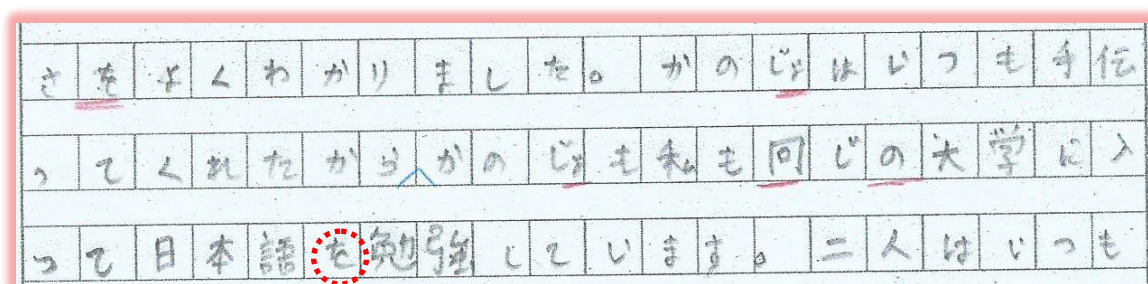 さをよくわかりました。かのじょはいつも手伝
ってくれたからかのじょも私も回じの大学に入
って日本語を勉強しています。二人はいつも